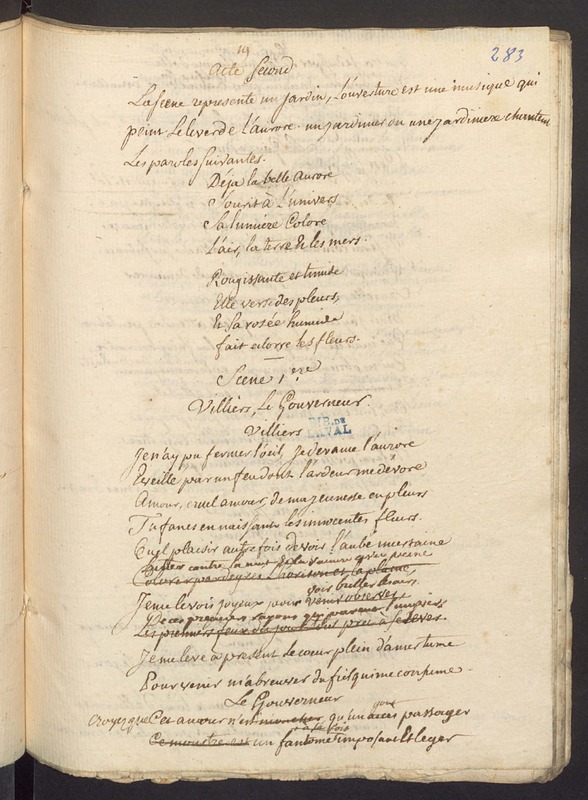 283
Acte Second
La scene represente un jardin, l'ouverture est une musique qui
peint le lever de l'aurore. un jardinier ou une jardiniere chantent
Les paroles suivantes.
Déja la belle aurore
Sourit à l'univers
Sa lumiere Colore
L'air, la terre & les mers.
Rougissante et timide
Elle verse des pleurs,
& sa rosée humide
fait eclorre les fleurs.
Scene 1ere
Villiers, Le Gouverneur.
BIB. DE
LAVAL
Villiers
Je n'ay pu fermer l'oeil, je devance l'aurore
Eveillé par un feu dont l'ardeur me dévore
Amour, cruel amour de ma jeunesse en pleurs
Tu fanes en naissant les innocentes fleurs.
Quel plaisir autrefois de voir l'aube incertaine
Lutter contre la nuit & la vaincre avec peine
Colorer par degrés l'horison et la plaine
voir briller
Je me levois joyeux pour venir observer
ces premiers rayons
Les premiers feux du jour tout pret a se lever.
Je me leve a present le coeur plein d'amertume
Pour venir m'abreuver du fiel qui me consume.
Le Gouverneur
croyez que Cet amour n'est qu'un acces passager
Ce monstre est un fantome imposant & leger